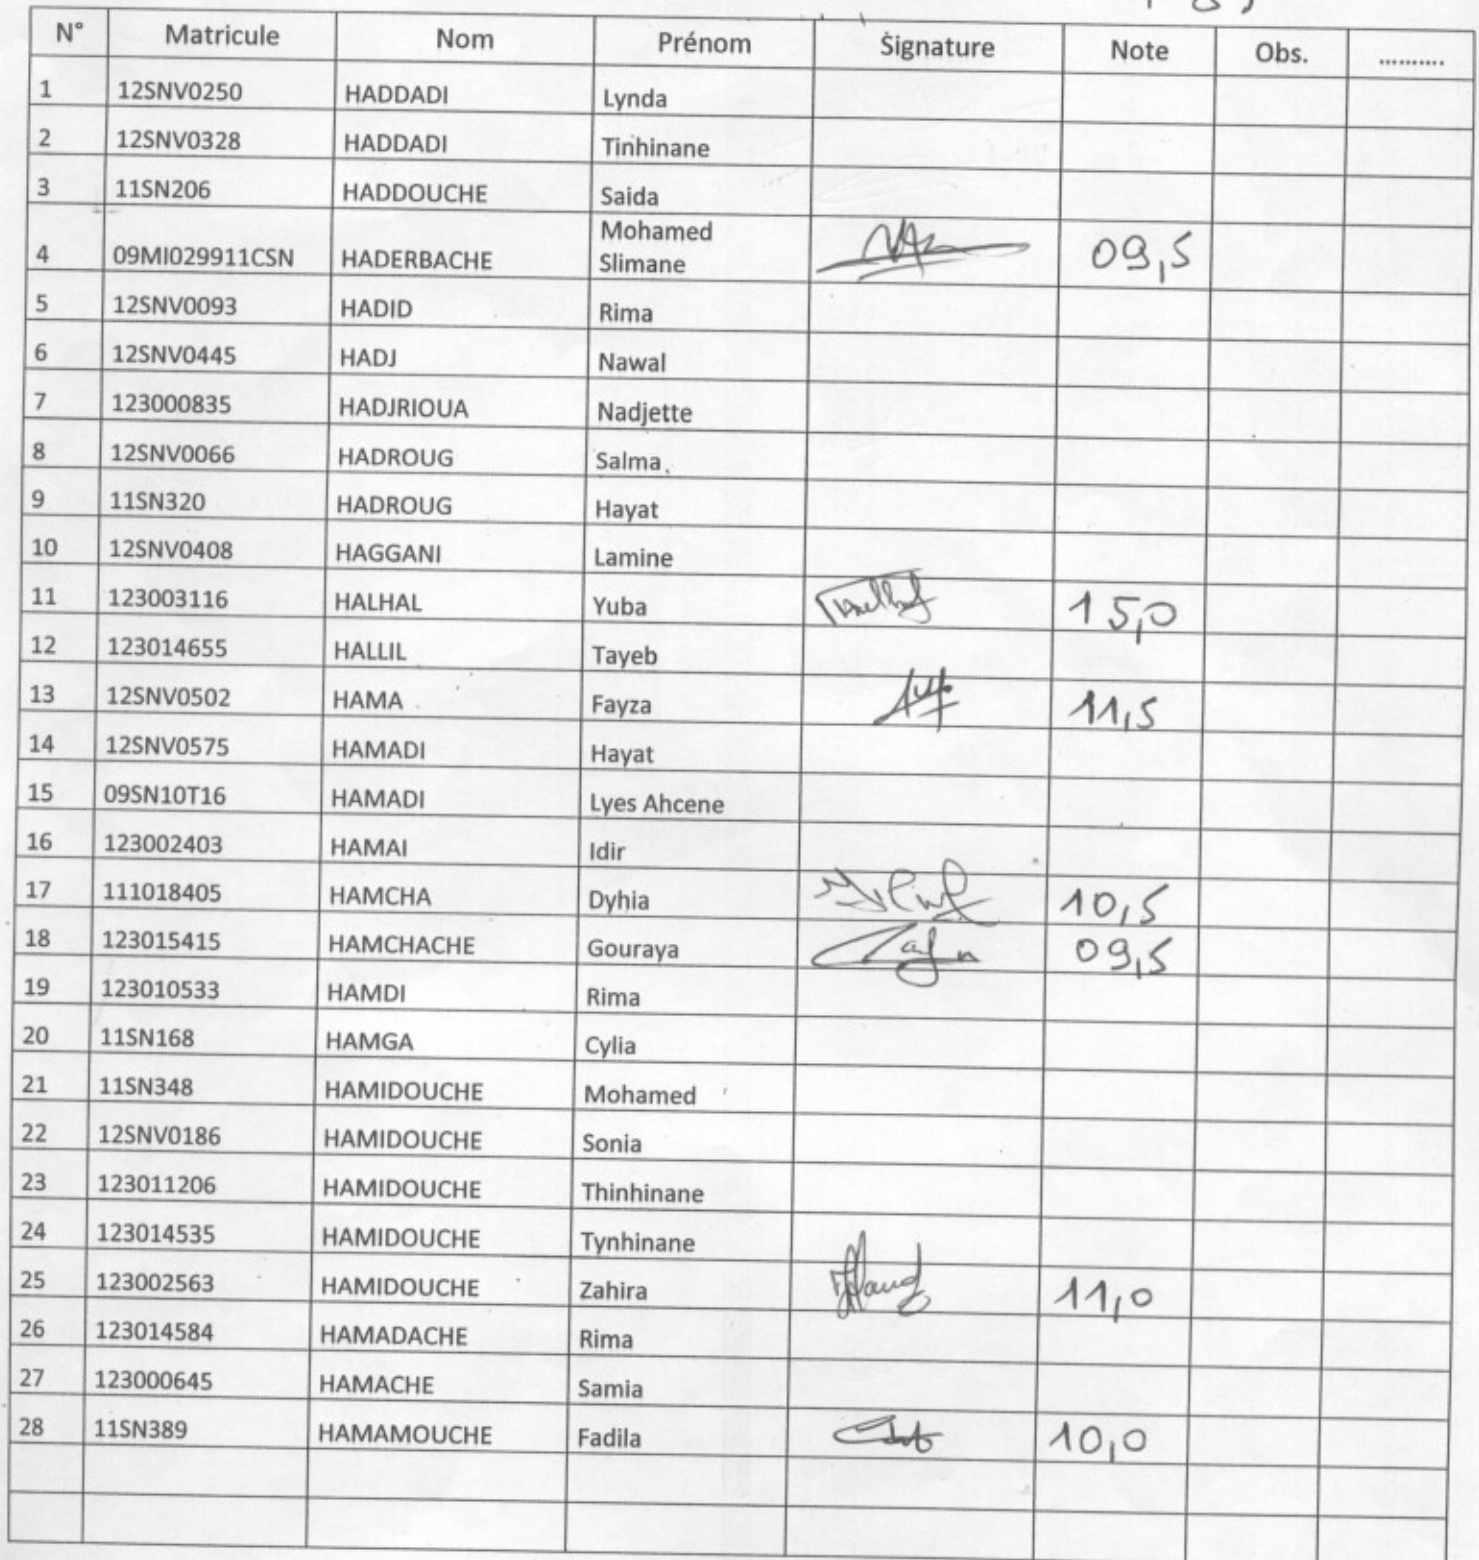 N° Matricule Nom Prénom Signature Note Obs. ..........
1 12SNV0250 HADDADI Lynda
2 12SNV0328 HADDADI Tinhinane
3 11SN206 HADDOUCHE Saida
4 09MI029911CSN HADERBACHE Mohamed Slimane 09,5
5 12SNV0093 HADID Rima
6 12SNV0445 HADJ Nawal
7 123000835 HADJRIOUA Nadjette
8 12SNV0066 HADROUG Salma
9 11SN320 HADROUG Hayat
10 12SNV0408 HAGGANI Lamine
11 123003116 HALHAL Yuba 15,0
12 123014655 HALLIL Tayeb
13 12SNV0502 HAMA Fayza 11,5
14 12SNV0575 HAMADI Hayat
15 09SN10T16 HAMADI Lyes Ahcene
16 123002403 HAMAI Idir
17 111018405 HAMCHA Dyhia 10,5
18 123015415 HAMCHACHE Gouraya 09,5
19 123010533 HAMDI Rima
20 11SN168 HAMGA Cylia
21 11SN348 HAMIDOUCHE Mohamed
22 12SNV0186 HAMIDOUCHE Sonia
23 123011206 HAMIDOUCHE Thinhinane
24 123014535 HAMIDOUCHE Tynhinane
25 123002563 HAMIDOUCHE Zahira 11,0
26 123014584 HAMADACHE Rima
27 123000645 HAMACHE Samia
28 11SN389 HAMAMOUCHE Fadila 10,0